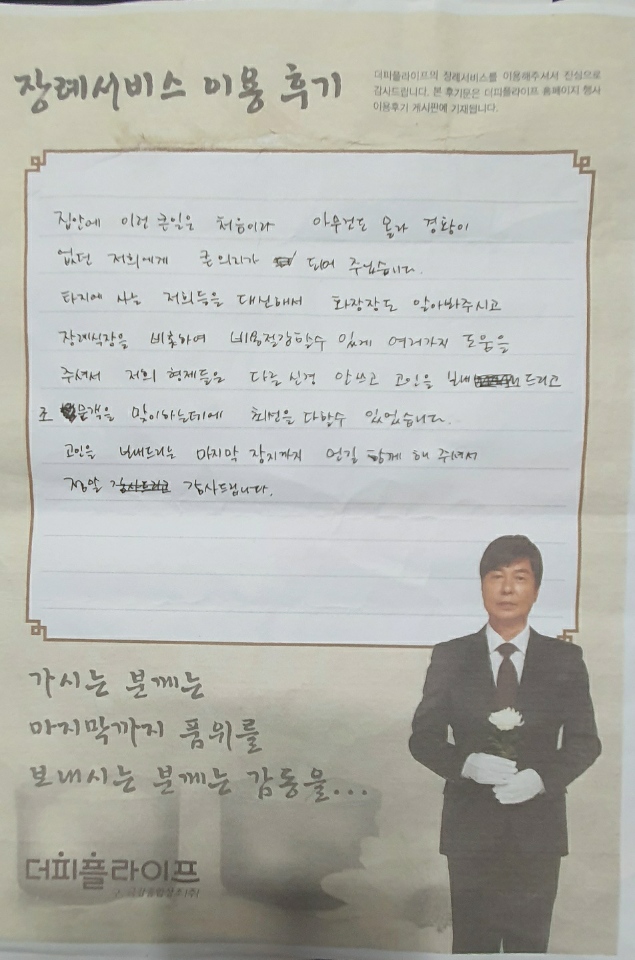 장례서비스 이용 후기
더피플라이프의 장례서비스를 이용해주셔서 진심으로
감사드립니다. 본 후기문은 더피플라이프 홈페이지 행사
이용후기 게시판에 기재됩니다.
집안에 이런 큰일은 처음이라 아무것도 몰라 경황이
없던 저희에게 큰 의지가 되어 주셨습니다.
타지에 사는 저희들을 대신해서 화장장도 알아봐주시고
장례식장을 비롯하여 비용절감할수 있게 여러가지 도움을
주셔서 저희 형제들은 다른 신경 안쓰고 고인을 보내드리고
조문객을 맞이하는데에 최선을 다할수 있었습니다.
고인을 보내드리는 마지막 장지까지 먼길 함께 해 주셔서
정말 감사드립니다.
가시는 분께는
마지막까지 품위를
보내시는 분께는 감동을...
더피플라이프